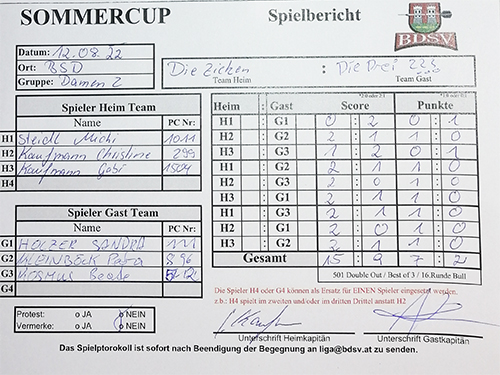 SOMMERCUP Spielbericht
BDSV
Datum: 12.08.22
Ort: BSD
Gruppe: Damen 2
Die Zicken : Die Drei
Team Heim Team Gast
Spieler Heim Team
Name PC Nr:
H1 Steidl Michi 1011
H2 Kaufmann Christine 299
H3 Kaufmann Gabi 1504
H4
Spieler Gast Team
Name PC Nr:
G1 HOLZER SANDRA 111
G2 KLEINBÖCK Petra 896
G3 Beate
G4
Protest: o JA o NEIN
Vermerke: o JA o NEIN
Heim : Gast Score Punkte
H1 : G1 0 : 2 0 : 1
H2 : G2 2 : 1 1 : 0
H3 : G3 1 : 2 0 : 1
H1 : G2 2 : 1 1 : 0
H2 : G3 2 : 0 1 : 0
H3 : G1 2 : 1 1 : 0
H1 : G3 2 : 1 1 : 0
H2 : G1 2 : 0 1 : 0
H3 : G2 2 : 1 1 : 0
Gesamt 15 : 9 7 : 2
501 Double Out / Best of 3 / 16.Runde Bull
Die Spieler H4 oder G4 können als Ersatz für EINEN Spieler eingesetzt werden.
z.b.: H4 spielt im zweiten und/oder im dritten Drittel anstatt H2
Unterschrift Heimkapitän Unterschrift Gastkapitän
Das Spielptorokoll ist sofort nach Beendigung der Begegnung an liga@bdsv.at zu senden.